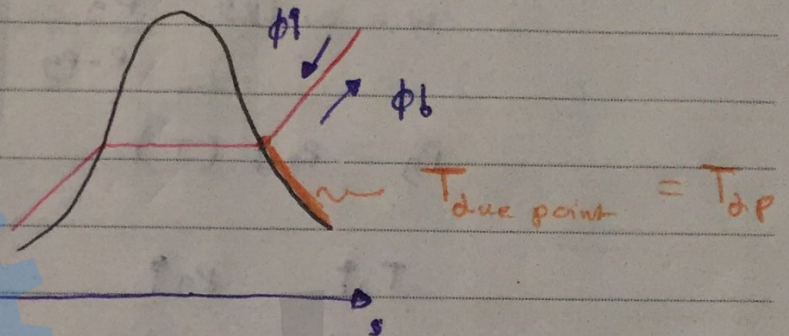 ϕ↑
ϕ↓
T due point = T dp
s